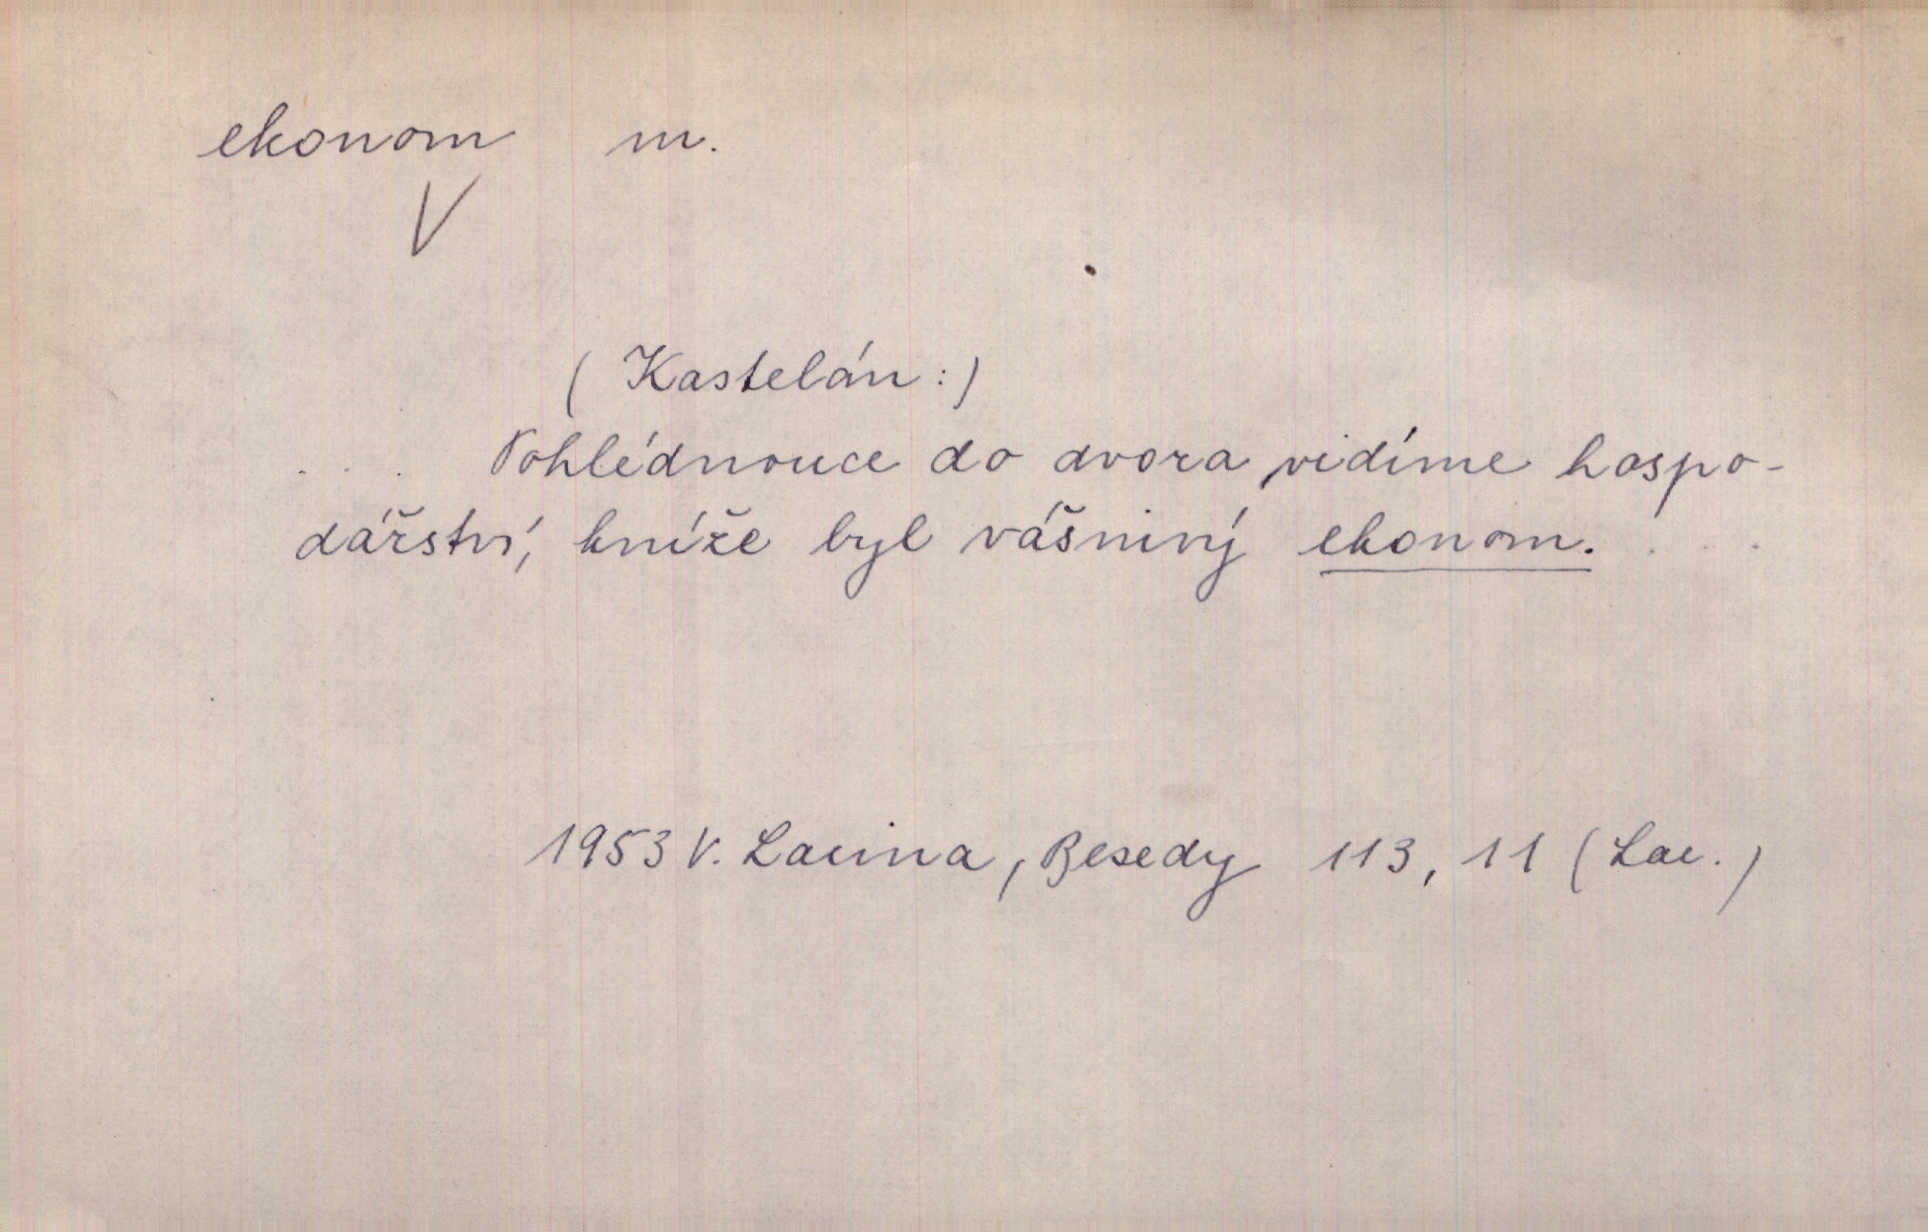 ekonom m.
V
(Kastelán:)
... Pohlédnouce do dvora vidíme hospo-
dářství, kníže byl vášnivý ekonom. ...
1953 V. Lacina, Besedy 113, 11 (Lac.)